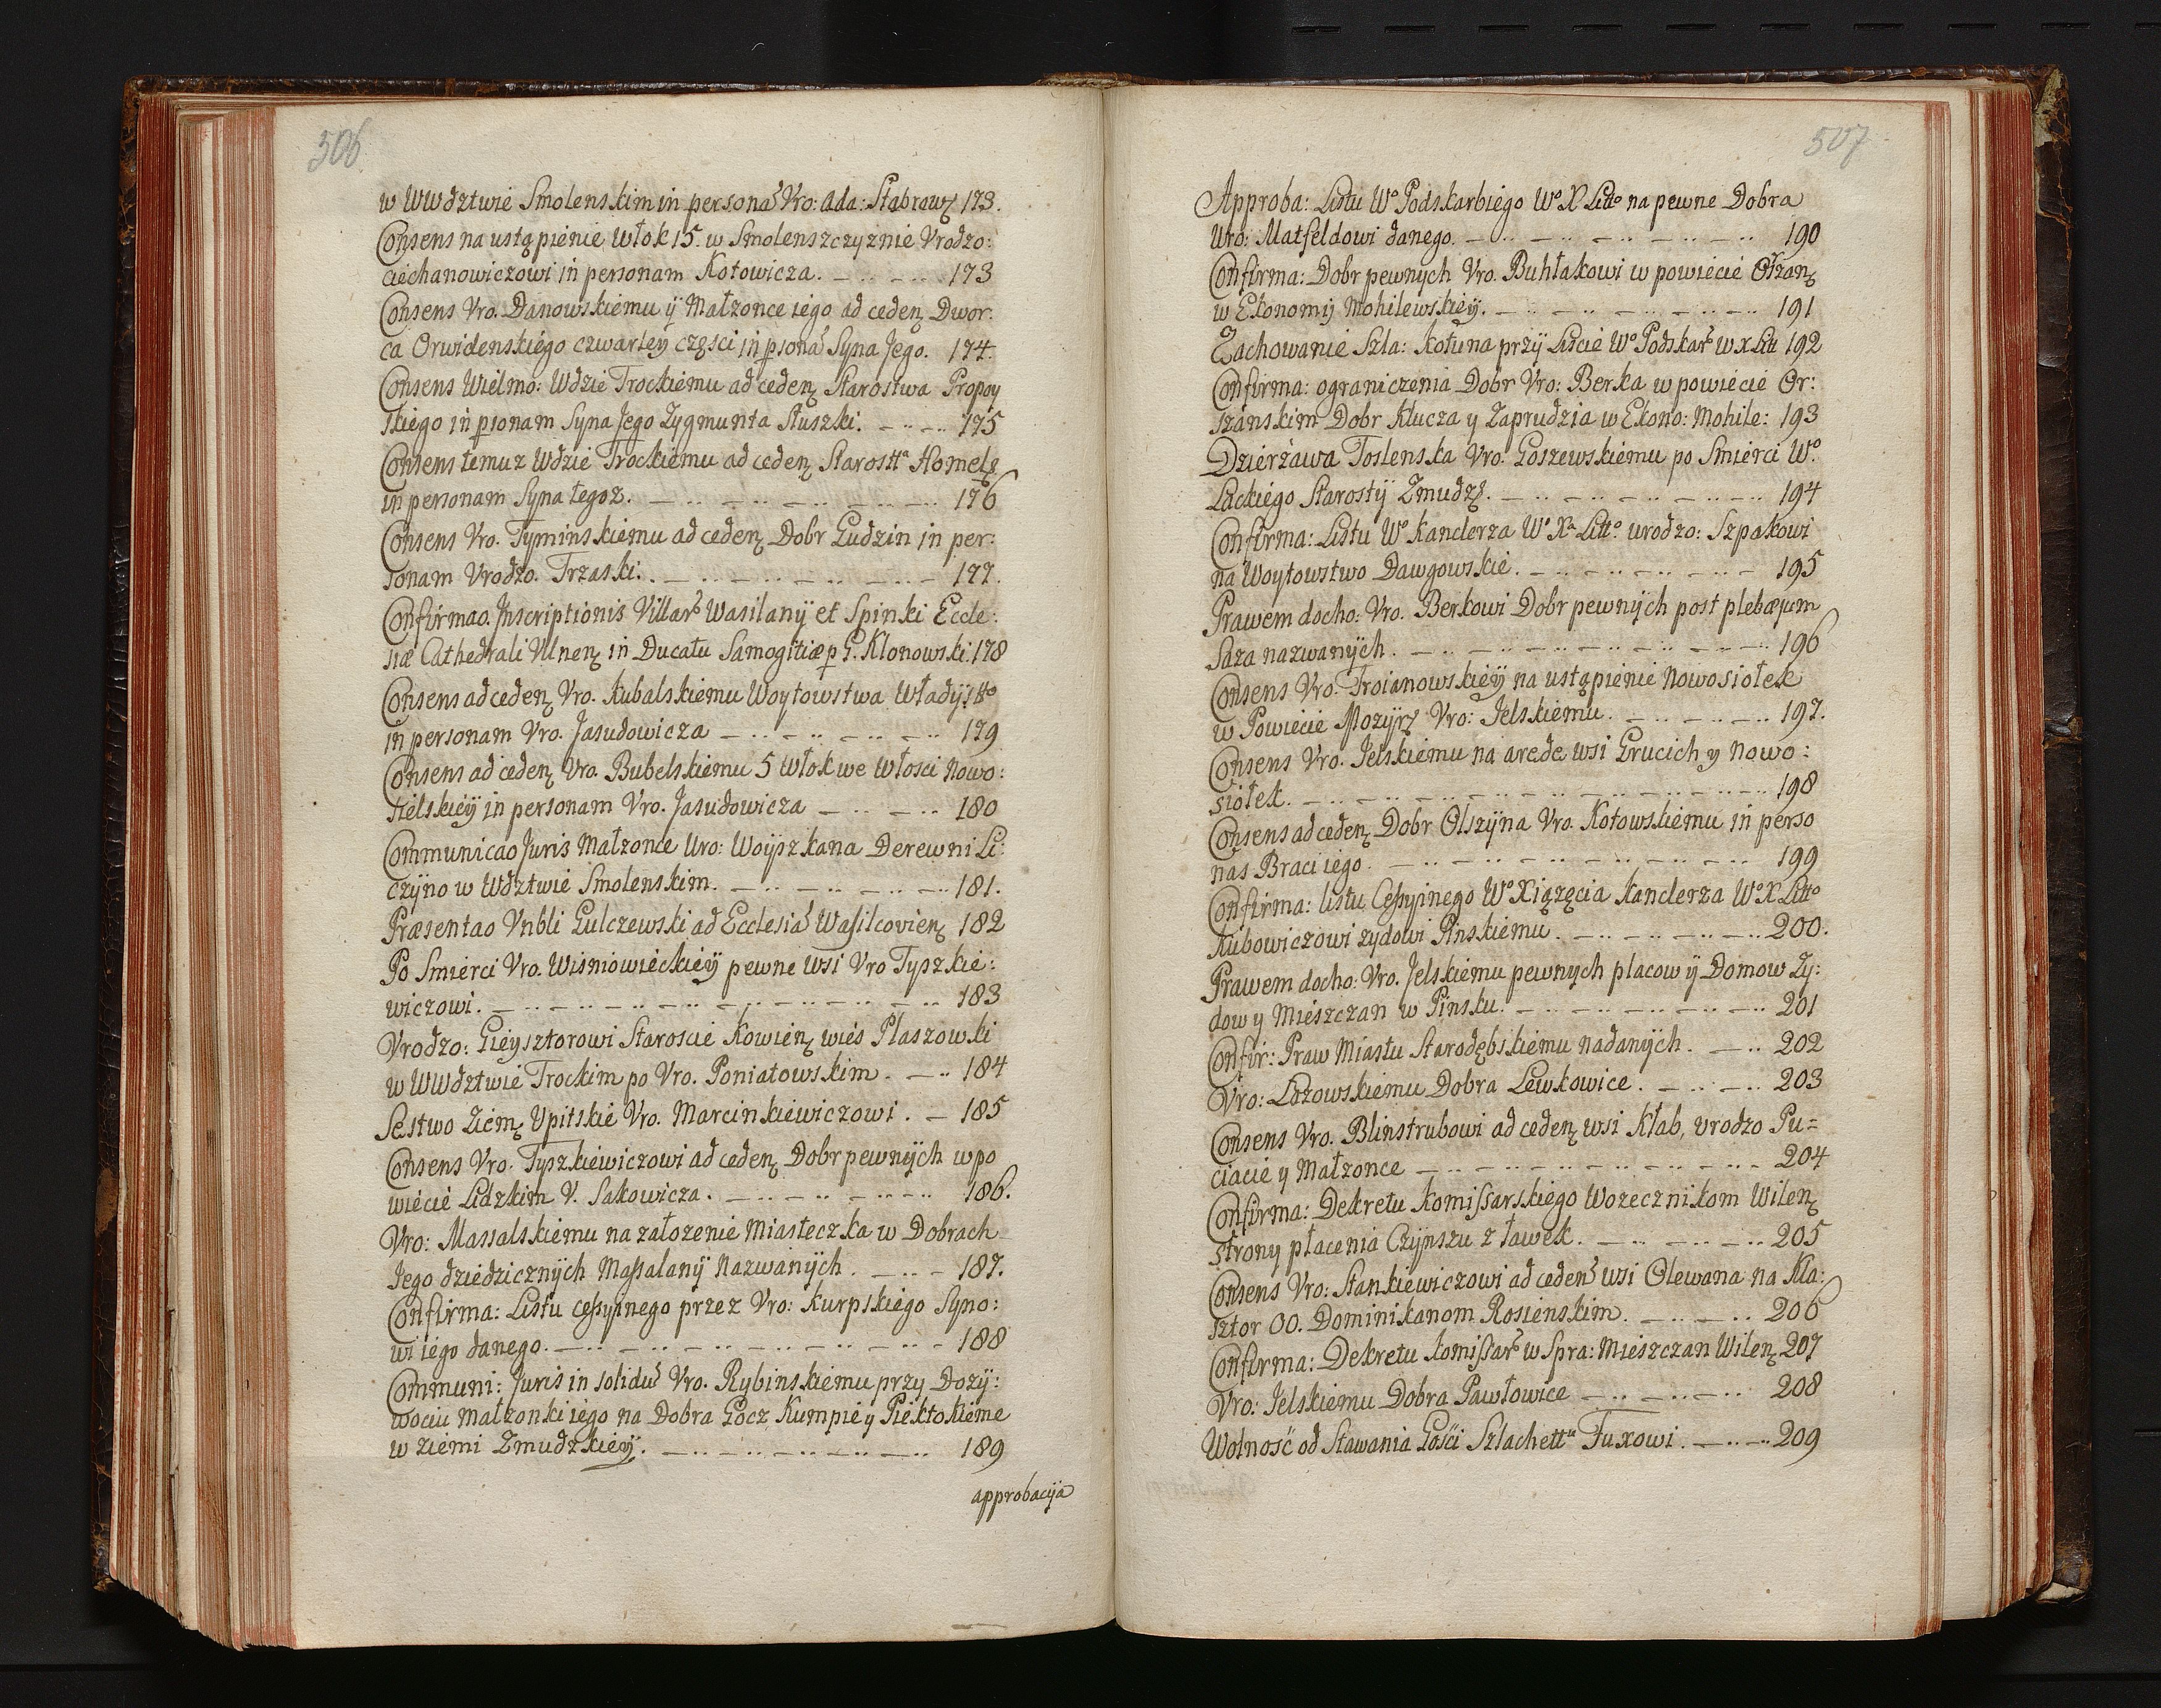 506.
w WWdztwie Smolenskim in persona Vro: Ada: Stabrow 173.
Consens na ustąpienie Włok 15. w Smolenszczyznie Vrodzo:
ciechanowiczowi in personam Kotowicza. 173
Consens Vro. Danowskiemu ÿ Małzonce iego ad ceden Dwor:
ca Orwidenskiego czwarteÿ częsci in psona Syna Jego. 174.
Consens Wielmo: Wdzie Trockiemu ad ceden Starostwa Propoy
skiego in psonam Syna Jego Zygmunta Słuszki. 175
Consens temuz Wdzie Trockiemu ad ceden Starostta Homele
in personam Syna tegoz. 176
Consens Vro. Tyminskiemu ad ceden Dobr Gudzin in per:
sonam Vrodzo. Trzaski. 177.
Confirmao. Inscriptionis Villar Wasilanÿ et Spinki Eccle:
siæ Cathedrali Vilnen in Ducatu Samogitiæ p G. Klonowski. 178
Consens ad ceden Vro. Kubalskiemu Woytowstwa Władÿ: tto
in personam Vro. Jasudowicza 179
Consens ad ceden Vro. Bubelskiemu 5 Włok we Włosci Nowo:
sielskieÿ in personam Vro. Jasudowicza 180
Communicao Juris Małzonce Uro: Woÿszkana Derewni Li:
czÿno w Wdztwie Smolenskim. 181.
Præsentao Vnbli Gulczewski ad Ecclesia Wasilcovien 182
Po Smierci Vro. Wisniowieckieÿ pewne Wsi Vro Tyszkie:
wiczowi. 183
Vrodzo: Gieysztorowi Staroscie Kowien wies Plaszowki
w WWdztwie Trockim po Vro. Poniatowskim. 184
Sęstwo Ziem Upitskie Vro. Marcinkiewiczowi. 185
Consens Vro. Tyszkiewiczowi ad ceden Dobr pewnÿch w po
wiecie Lidzkim V. Sakowicza. 186.
Vro: Massalskiemu na załozenie Miasteczka w Dobrach
Jego dziedzicznÿch Massalanÿ Nazwanÿch. 187.
Confirma: Listu cessyinego przez Vro: Kurpskiego Syno:
wi iego danego. 188
Communi: Juris in solidu Vro. Rybinskiemu przy Dozÿ:
wociu małzonki iego na Dobra Gocz Kumpie y Piektokieme
w ziemi Zmudzkieÿ. 189
approbacÿa
507
Approba: Listu Wo Podskarbiego Wo X Litto na pewne Dobra
Uro: Matfeldowi danego. 190
Confirma: Dobr pewnych Vro. Buhłakowi w powiecie Orszan
w Ekonomÿ Mohilewskieÿ. 191
Zachowanie Szla: Kołuna przÿ Liscie Wo Podskar W X Litt 192
Confirma: ograniczenia Dobr Vro: Berka w powiecie Or:
szanskim Dobr Klucza y Zaprudzia w Ekono: Mohile: 193
Dzierzawa Toslenska Vro. Goszewskiemu po Smierci Wo.
Lackiego Starostÿ Zmudz. 194
Confirma: Listu Wo kanclerza Wo Xa Litto. urodzo: Szpakowi
na Woytowstwo Dawgowskie. 195
Prawem docho: Vro. Berkowi Dobr pewnÿch post plebæjum
Saza nazwanÿch. 196
Consens Vro. Troianowskieÿ na ustąpienie Nowosiołek
w Powiecie Mozÿr Vro: Jelskiemu. 197.
Consens Vro. Jelskiemu na aredę wsi Grucich y Nowo:
siołek. 198
Consens ad ceden Dobr Olszÿna Vro. Kotowskiemu in perso
nas Braci iego. 199
Confirma: listu Cessyinego Wo Xiążęcia kanclerza Wo X Litto
Kubowiczowi zydowi Pinskiemu. 200.
Prawem docho: Vro. Jelskiemu pewnych placow ÿ Domow Zy:
dow y Mieszczan w Pinsku. 201
Confir: Praw Miastu Starodębskiemu nadanÿch. 202
Vro: Lozowskiemu Dobra Lewkowice. 203
Consens Vro. Blinstrubowi ad ceden wsi Kłab, urodzo Pu=
ciacie y Małzonce 204
Confirma: Dekretu Komissarskiego Wozecznikom Wilen
strony płacenia Czÿnszu z ławek. 205
Consens Vro: Stankiewiczowi ad ceden wsi Olewana na Kla:
sztor OO. Dominikanom Rosienskim. 206
Confirma: Dekretu Komissar w Spra: Mieszczan Wilen 207
Vro: Jelskiemu Dobra Pawłowice 208
Wolnosć od Stawania Gosci Szlachettu Fuxowi. 209